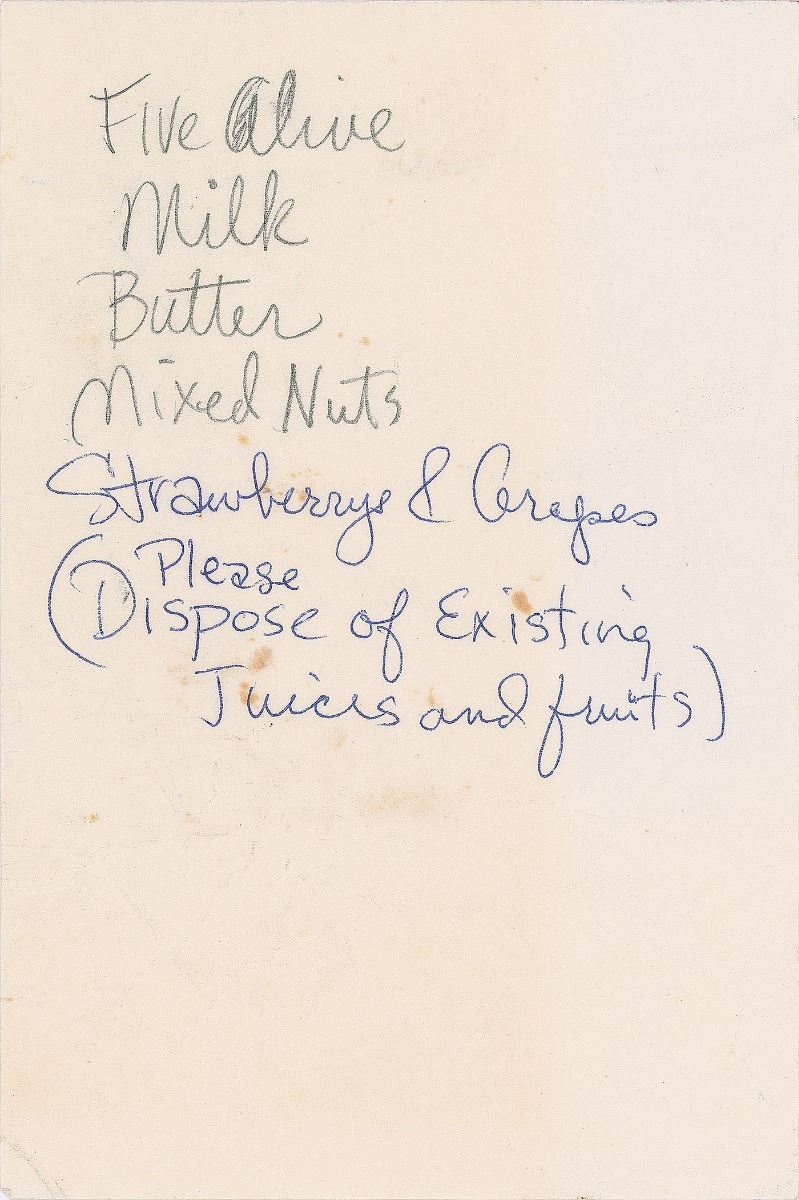 Five Alive
Milk
Butter
Mixed Nuts
Strawberrys & Grapes
(Please
Dispose of Existing
Juices and fruits)